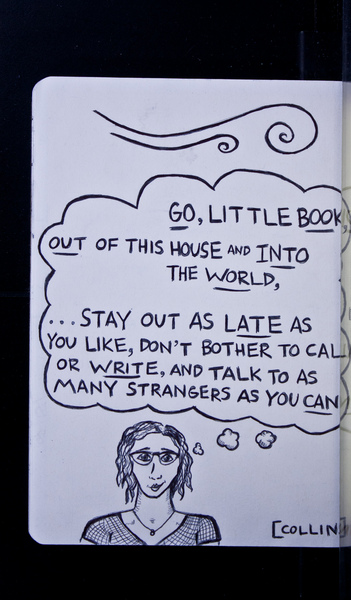 GO, LITTLE BOOK,
OUT OF THIS HOUSE AND INTO
THE WORLD,
...STAY OUT AS LATE AS
YOU LIKE, DON'T BOTHER TO CALL
OR WRITE, AND TALK TO AS
MANY STRANGERS AS YOU CAN
[COLLINS]